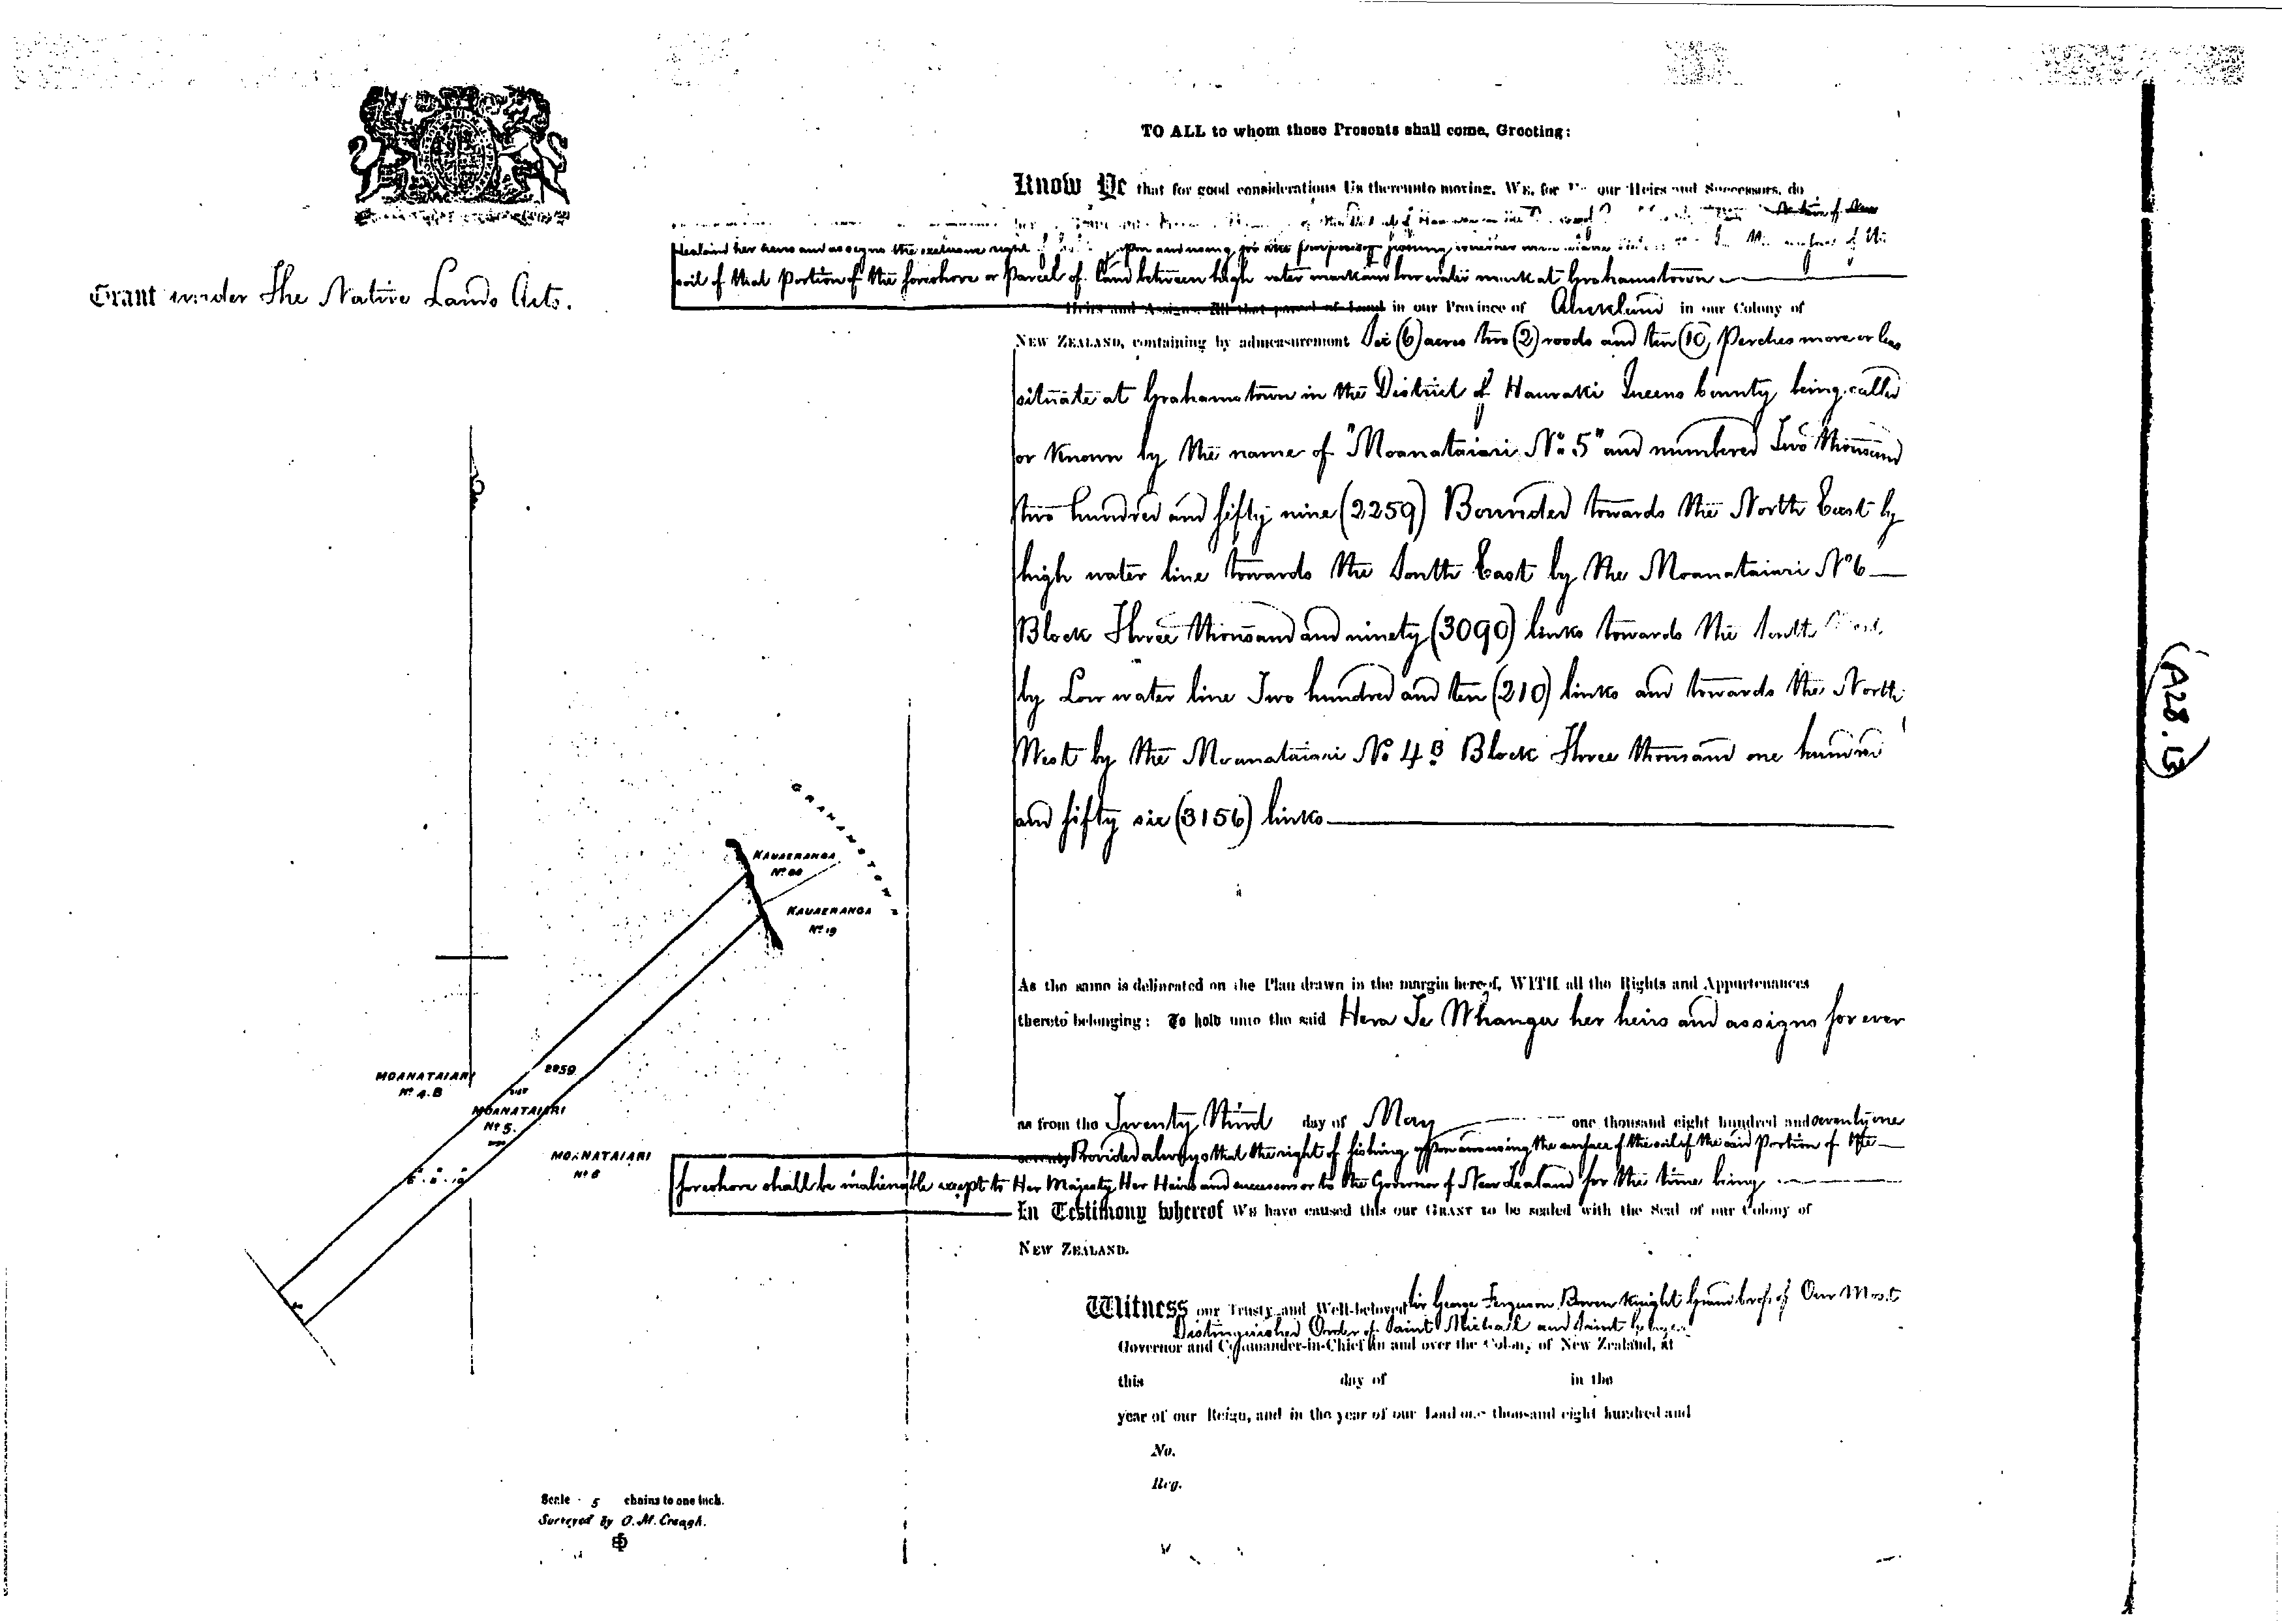 TO ALL to whom these Presents shall come, Greeting:
Know Ye that for good considerations Us thereunto moving, WE, for Us our Heirs and Successors, do
Zealand her heirs and assigns the exclusive right of upon and using for the purposes of fishing surface of the
soil of that Portion of the foreshore or Parcel of Land between high water mark and low water mark at Grahamstown
Grant under The Native Lands Acts.
Heirs and Assigns All that parcel of Land in our Province of Auckland in our Colony of
NEW ZEALAND, containing by admeasurement Six (6) acres two (2) roods and ten (10) Perches more or less
situate at Grahamstown in the District of Hauraki Queens County being called
or known by the name of "Moanataiari No. 5" and numbered Two thousand
two hundred and fifty nine (2259) Bounded towards the North East by
high water line towards the South East by the Moanataiari No 6
Block Three thousand and ninety (3090) links towards the South West
by Low water line Two hundred and ten (210) links and towards the North
West by the Moanataiari No 4B Block Three thousand one hundred
and fifty six (3156) links
GRAHAMSTOWN
KAUAERANGA
No
KAUAERANGA
No 19
As the same is delineated on the Plan drawn in the margin hereof, WITH all the Rights and Appurtenances
thereto belonging: To hold unto the said Hera Te Whanga her heirs and assigns for ever
2259
MOANATAIARI
No 4.B
MOANATAIARI
No 5.
MOANATAIARI
No 6
6. 2. 10
as from the Twenty third day of May one thousand eight hundred and seventy one
Provided always that the right of fishing upon and using the surface of the soil of the said Portion of the
foreshore shall be inalienable except to Her Majesty Her Heirs and successors or to the Governor of New Zealand for the time being
In Testimony whereof WE have caused this our GRANT to be sealed with the Seal of our Colony of
NEW ZEALAND.
Witness our Trusty and Well-beloved Sir George Ferguson Bowen Knight Grand Cross of Our Most
Distinguished Order of Saint Michael and Saint George
Governor and Commander-in-Chief in and over the Colony of New Zealand, at
this day of in the
year of our Reign, and in the year of our Lord one thousand eight hundred and
No.
Reg.
Scale 5 chains to one inch.
Surveyed by O. M. Creagh.
(A28.13)